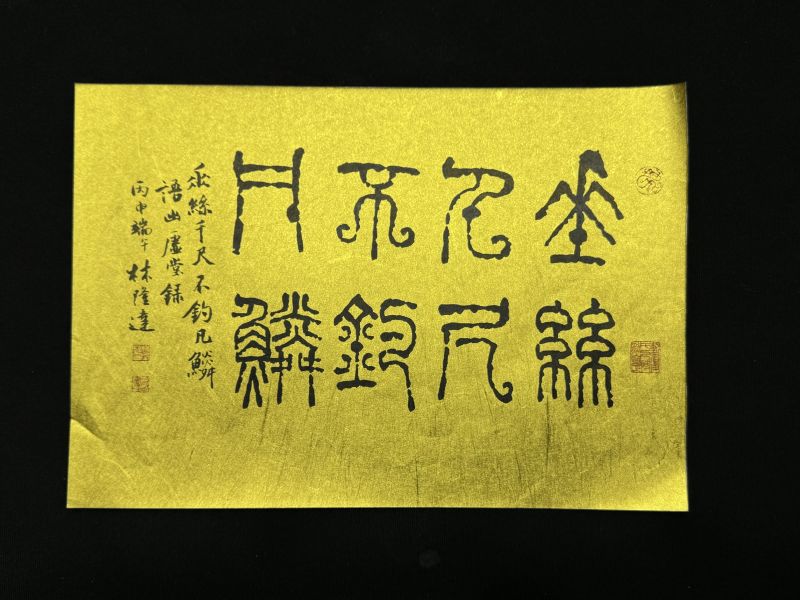 垂絲
千尺
不釣
凡鱗
垂絲千尺不釣凡鱗
語出虛堂録
丙申端午 林隆達